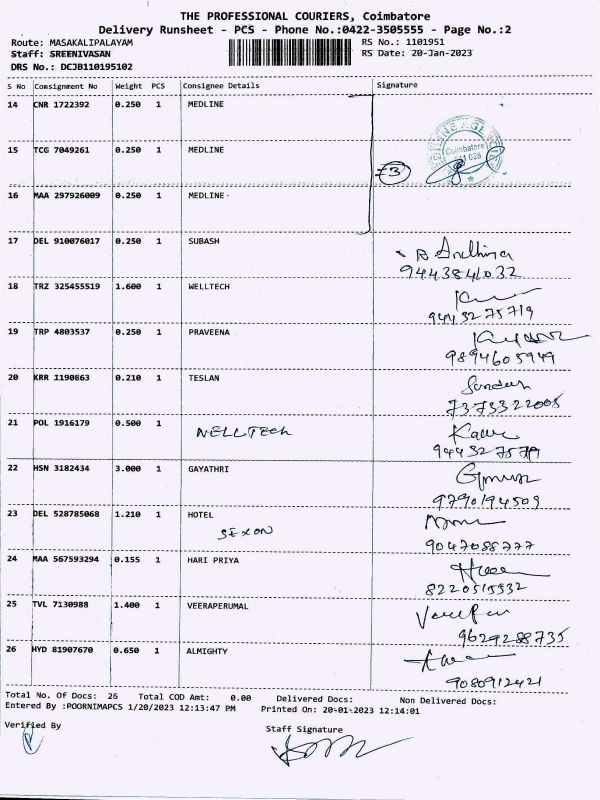 THE PROFESSIONAL COURIERS, Coimbatore
Delivery Runsheet - PCS - Phone No.:0422-3505555 - Page No.:2
Route: MASAKALIPALAYAM RS No.: 1101951
Staff: SREENIVASAN RS Date: 20-Jan-2023
DRS No.: DCJB110195102
S No Consignment No Weight PCS Consignee Details Signature
14 CNR 1722392 0.250 1 MEDLINE
15 TCG 7049261 0.250 1 MEDLINE
Coimbatore
16 MAA 297926009 0.250 1 MEDLINE
17 DEL 910076017 0.250 1 SUBASH
9443841032
18 TRZ 325455519 1.600 1 WELLTECH
9443275719
19 TRP 4803537 0.250 1 PRAVEENA
9894605949
20 KRR 1190863 0.210 1 TESLAN
7373322005
21 POL 1916179 0.500 1 WELLTECH
22 HSN 3182434 3.000 1 GAYATHRI
9790194509
23 DEL 528785068 1.210 1 HOTEL
SEXON
9047088777
24 MAA 567593294 0.155 1 HARI PRIYA
8220515532
25 TVL 7130988 1.400 1 VEERAPERUMAL
9629288735
26 HYD 81907670 0.650 1 ALMIGHTY
9080912421
Total No. Of Docs: 26 Total COD Amt: 0.00 Delivered Docs: Non Delivered Docs:
Entered By :POORNIMAPCS 1/20/2023 12:13:47 PM Printed On: 20-01-2023 12:14:01
Verified By Staff Signature